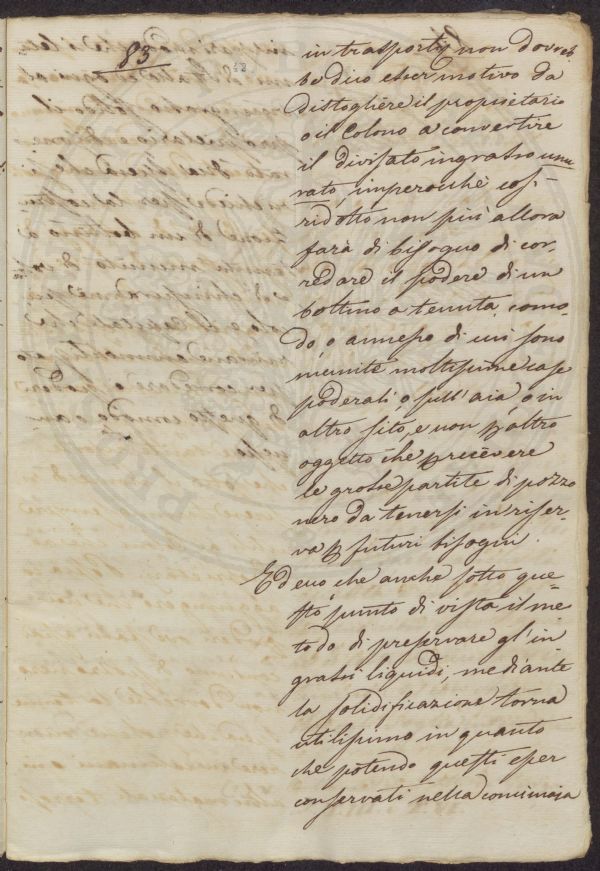 83
in trasporti, non dovreb
be dico esser motivo da
distogliere il proprietario
o il Colono a convertire
il divisato ingrasso
rato, imperocchè così
ridotto non più allora
farà di bisogno di cor,
redare il podere di un
bottino a tenuta, como-
do, o annesso di cui sono
munite moltissime case
poderali, o sull'aia, o in
altro sito, e non p altro
oggetto che p ricevere
le grosse partite di pozzo
nero da tenersi in riser-
va p futuri bisogni.
Ed ecco che anche sotto que
sto punto di vista il me-
todo di preservare gl'in
grassi liquidi, mediante
la solidificazione torna
utilissimo in quanto
che potendo questi esser
conservati nella concimaja